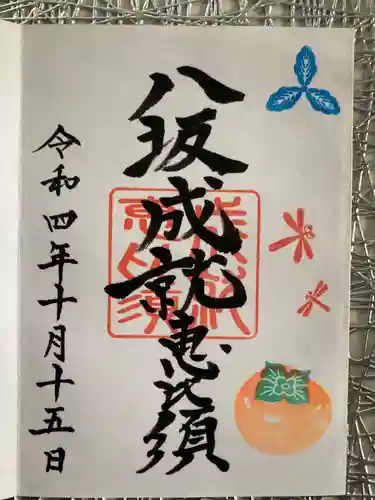 八坂成就恵比須
令和四年十月十五日